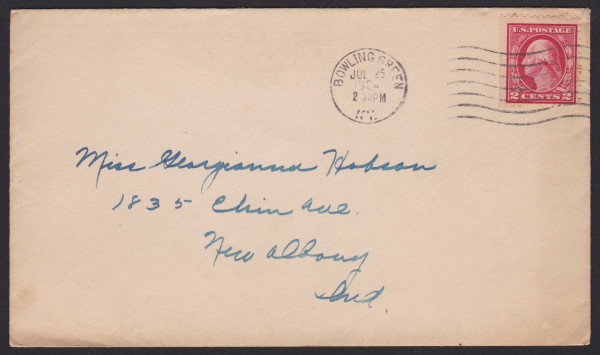 U.S. POSTAGE
2 CENTS 2
BOWLING GREEN
JUL 25
2 30PM
KY.
Miss Georgianna Hobson
1835 Ave.
New Albany
Ind